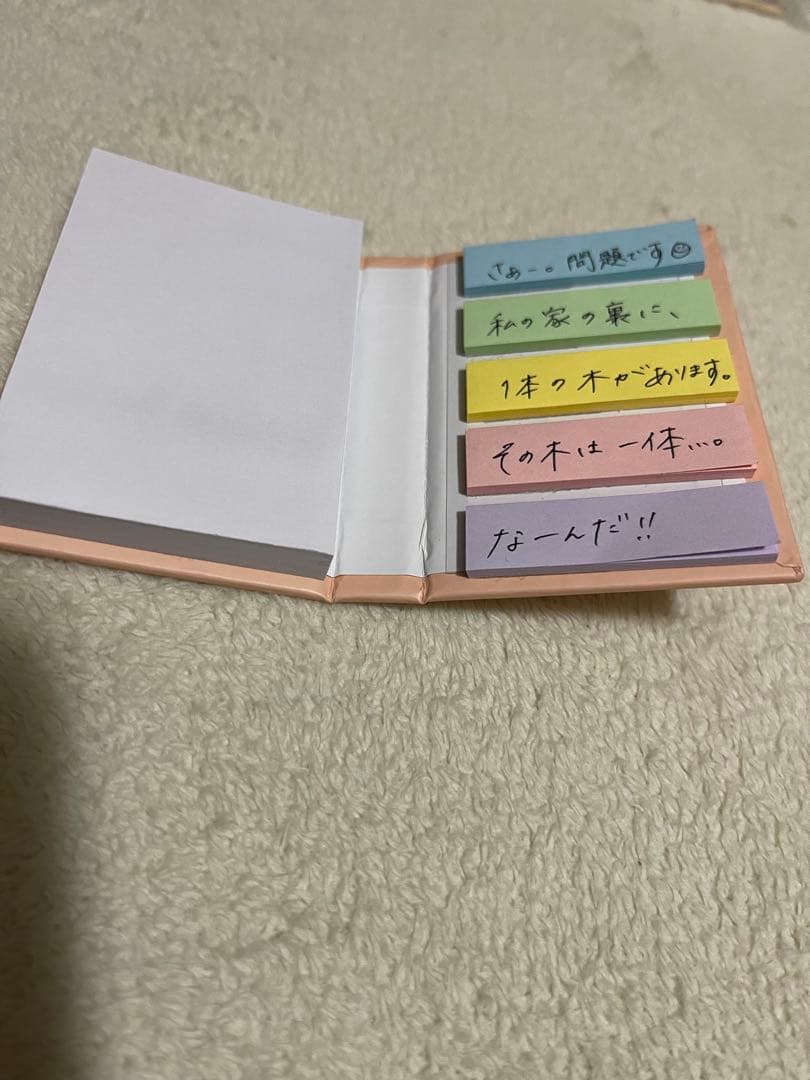 さぁー。問題です☺
私の家の裏に、
1本の木があります。
その木は一体...。
なーんだ!!